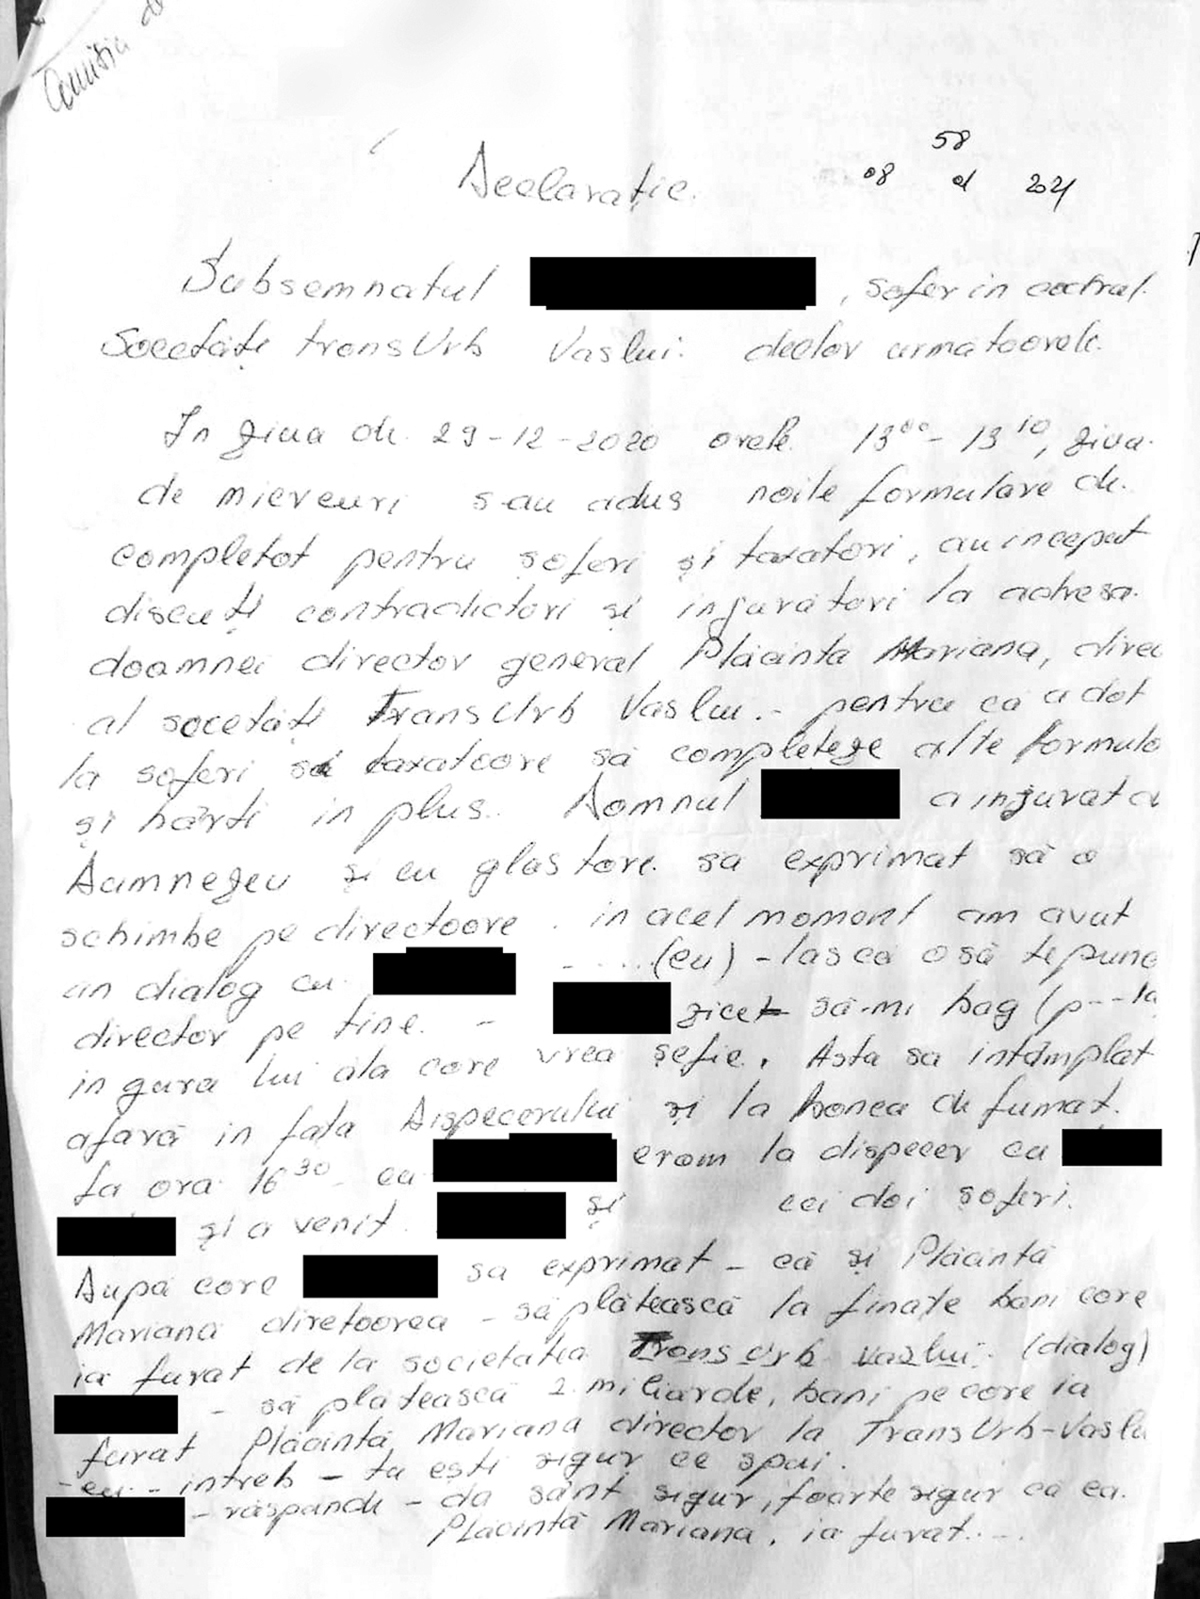 Comisia de
58
08 01 2021
Declarație.
Subsemnatul , sofer in cadrul.
Socetăți transUrb Vaslui. declar urmatoarele.
In ziua de. 29-12-2020 orele. 13⁰⁰- 13¹⁰, ziua.
de miercuri s-au adus noile formulare de.
completat pentru șoferi și taxatori, au inceput
discuți contradictori și injurători la adresa.
doamnei director general Plăcinta Mariana, direc
al socetăți TransUrb Vaslui.- pentru ca a dat
la soferi și taxatoare să completeze alte formula
și hărti in plus. Domnul a injurat cu
Dumnezeu și cu glas tare. sa exprimat să o
schimbe pe directoare. in acel moment am avut
un dialog cu. - ....(eu) -lasca osă te pună
director pe tine. - zice să-mi bag (p---la
in gura lui ăla care vrea șefie. Asta sa intâmplat
afară in fața Dispecerului și la banca de fumat.
La ora 16³⁰ eu eram la dispecer cu
și a venit. și cei doi șoferi.
După care sa exprimat - că și Plăcintă
Mariană diretoarea - să plătească la finațe bani care
ia furat de la societatia TransUrb Vaslui. (dialog)
- să plătească 2 miliarde, bani pe care ia
furat Plăcintă, Mariana director la TransUrb-Vaslu
- eu - intreb - tu ești sigur ce spui.
- răspunde - da sânt sigur, foarte sigur ca ea.
Plăcintă Mariana, ia furat....